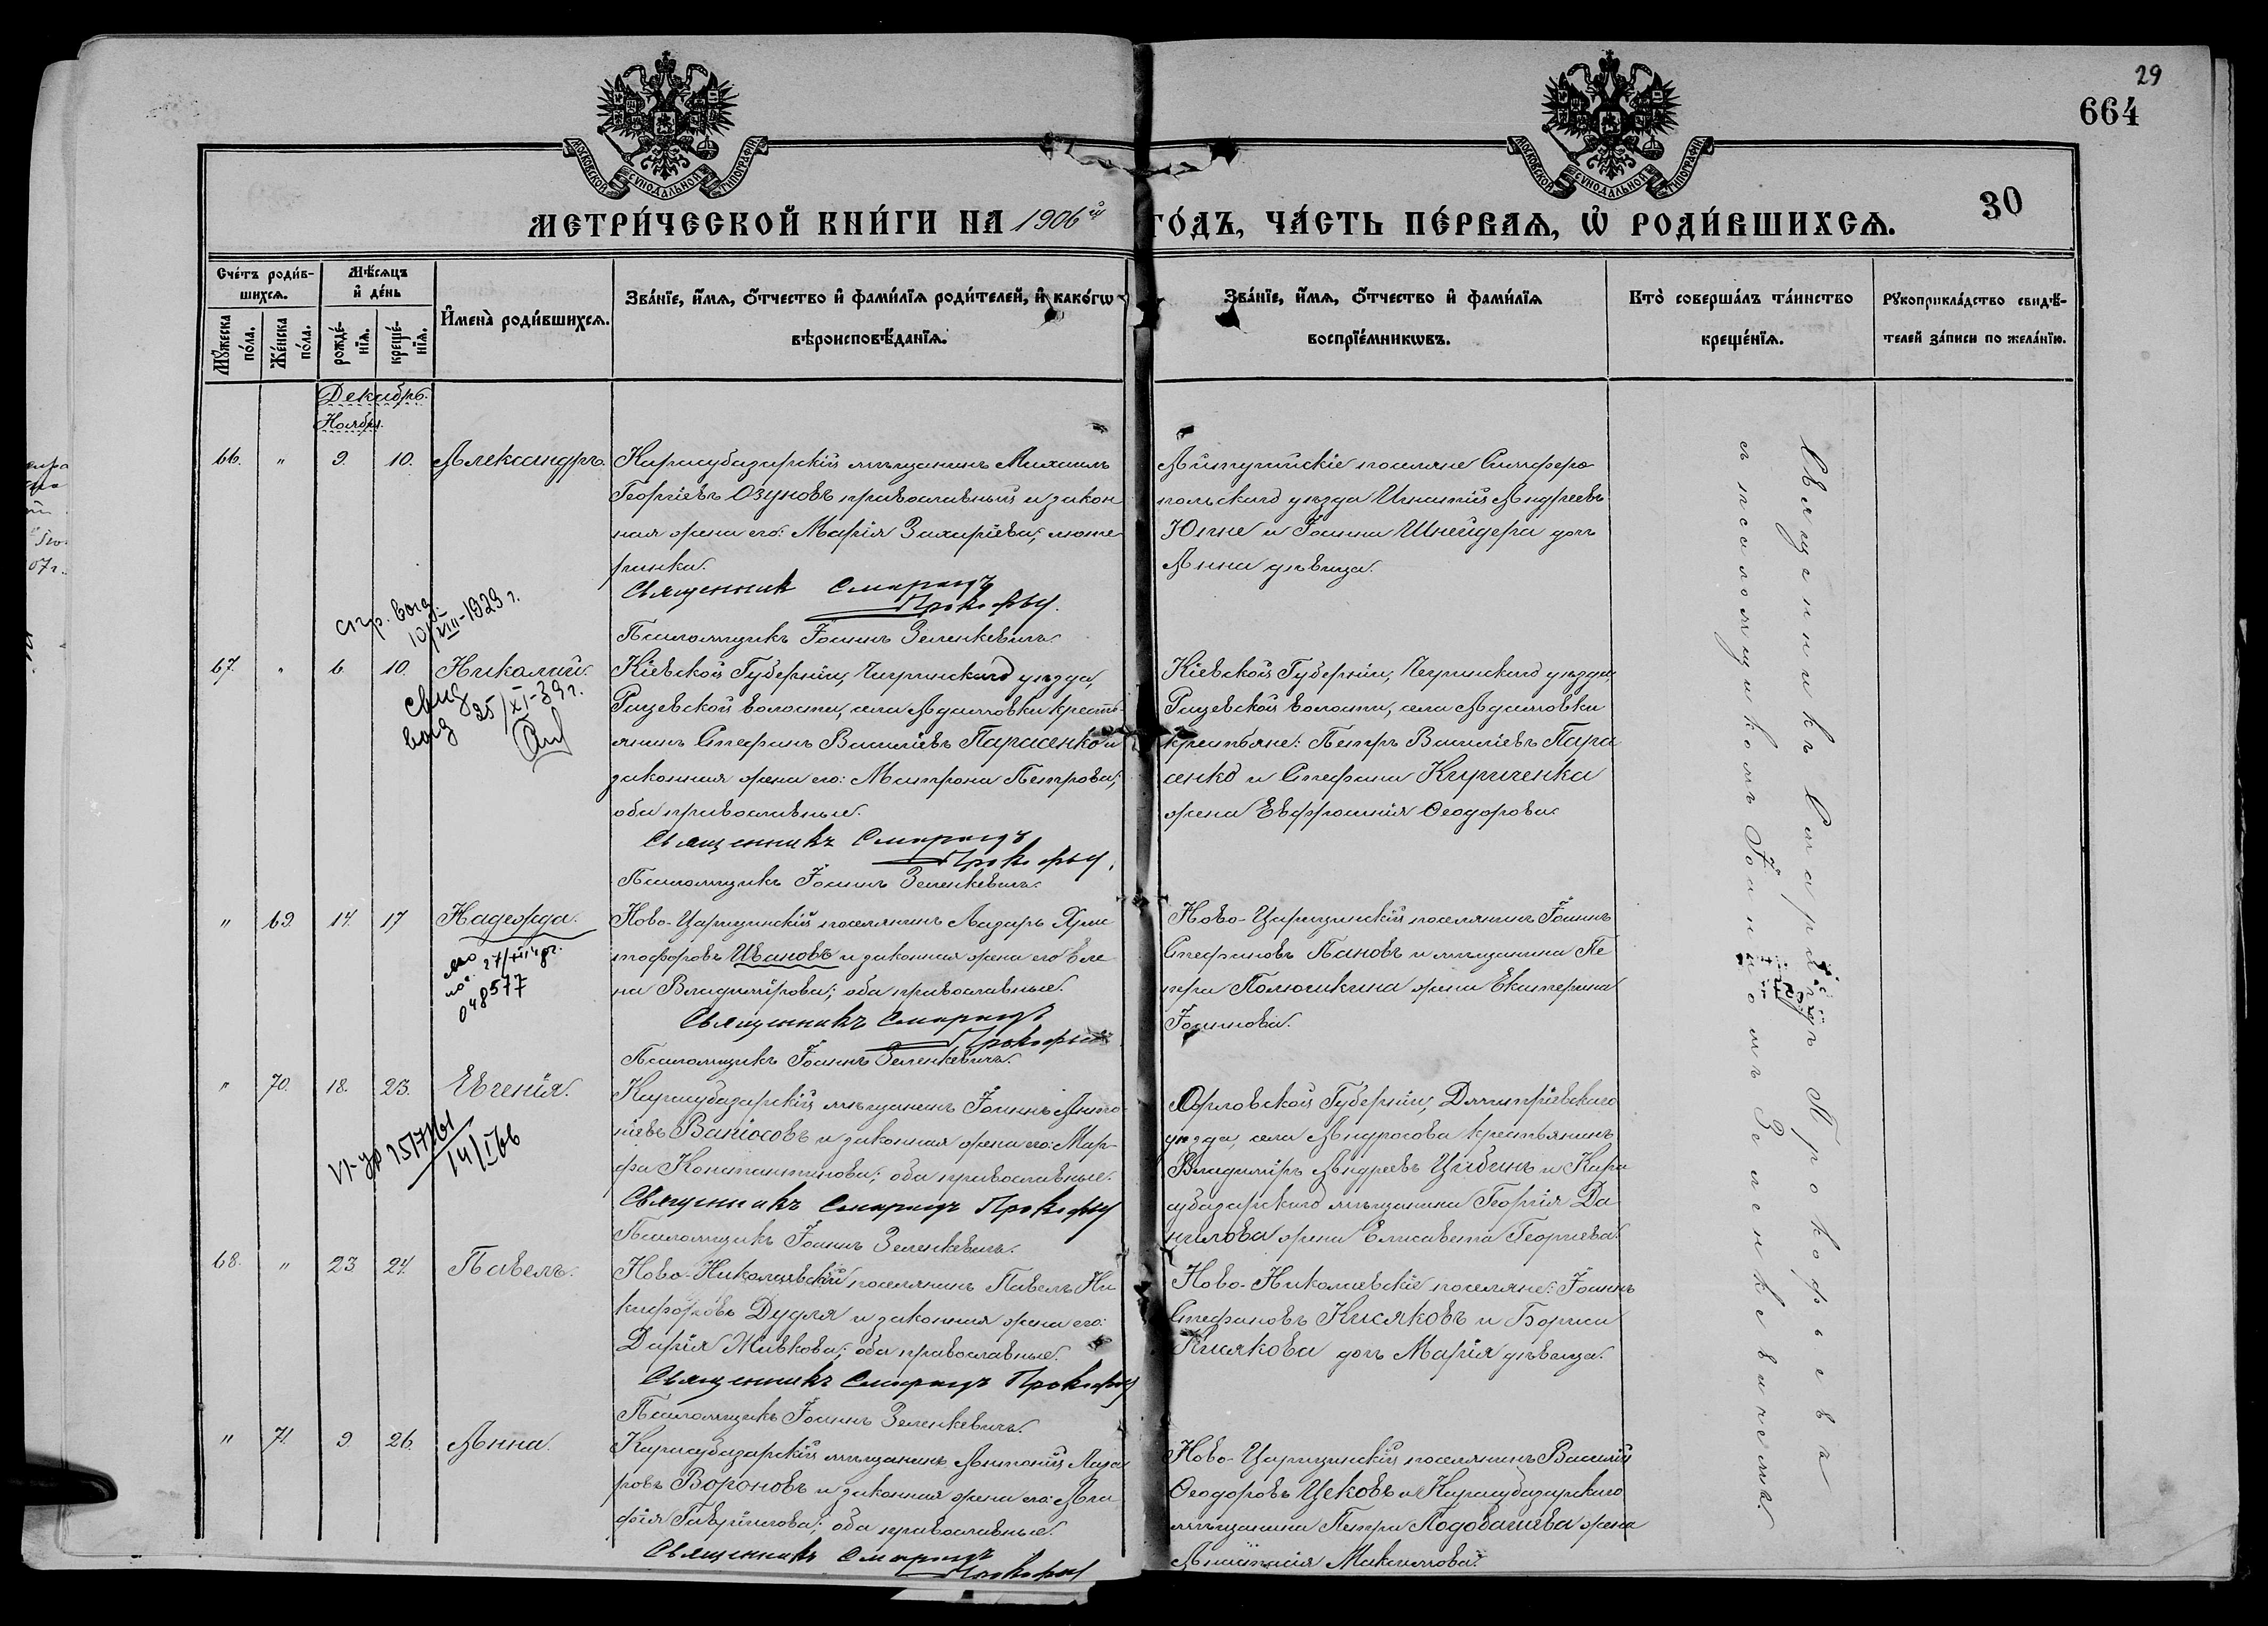 29
664
30
МОСКОВСКОЙ СѴНОДАЛЬНОЙ ТИПОГРАФІИ
МОСКОВСКОЙ СѴНОДАЛЬНОЙ ТИПОГРАФІИ
МЕТРИ́ЧЕСКОЙ КНИ́ГИ НА 1906й ГО́ДЪ, ЧА́СТЬ ПЕ́РВАѦ, Ѡ҆ РОДИ́ВШИХСѦ.
Сче́тъ роди́в-
шихсѧ.
Мѣ́сѧцъ
и҆ де́нь
Мꙋ́жеска по́ла.
Же́нска по́ла.
рожде́-нїѧ.
креще́-нїѧ.
И҆мена̀ роди́вшихсѧ.
Зва́нїе, и҆́мѧ, ѻ҆́тчество и҆ фами́лїѧ роди́телей, и҆ како́гѡ
вѣроисповѣ́данїѧ.
Зва́нїе, и҆́мѧ, ѻ҆́тчество и҆ фами́лїѧ
воспрїе́мникѡвъ.
Кто̀ соверша́лъ та́инство
креще́нїѧ.
Рꙋкоприкла́дство свидѣ́-
телей за́писи по жела́нїю.
Декабрь.
Ноября.
66. " 9. 10. Александръ.
Карасубазарскій мѣщанинъ Михаилъ
Георгіевъ Озуновъ православный и закон
ная жена его: Марія Захаріева, люте
ранка.
Священник Смарагдъ
Прокофьев.
Псаломщикъ Іоаннъ Зеленкевичъ.
поселяне Симферо
польскаго уѣзда Игнатій Андреевъ
Юнне и Іоанна Шнейдера дочь
Анна дѣвица.
67. " 6. 10. Николай.
10/VIII-1929 г.
свид
выд 25/XI-39 г.
Кіевской Губерніи, Чигринскаго уѣзда,
волости, села Адамовки кресть
янинъ Стефанъ Василіевъ Парасенко и
законная жена его: Матрона Петрова;
оба православные.
Священникъ Смарагдъ
Прокофьев.
Псаломщикъ Іоаннъ Зеленкевичъ.
Кіевской Губерніи, Чигринскаго уѣзда,
волости, села Адамовки
крестьяне: Петръ Василіевъ Пара
сенко и Стефана Кириченка
жена Евфросинія Ѳеодорова.
" 69. 14. 17 Надежда.
048577
Ново-Царицинскій поселянинъ Лазарь Хри
стофоровъ Ивановъ и законная жена его Еле
на Владимірова; оба православные.
Священникъ Смарагдъ
Прокофьев
Псаломщикъ Іоаннъ Зеленкевичъ.
Ново-Царицинскій поселянинъ Іоаннъ
Стефановъ Пановъ и мѣщанина Пе
тра Полюшкина жена Екатерина
Іоаннова.
" 70. 18. 23. Евгенія.
14/I 66
Карасубазарскій мѣщанинъ Іоаннъ Анто
ніевъ Вакіосовъ и законная жена его: Мар
фа Константинова; оба православные.
Священникъ Смарагдъ Прокофьев
Псаломщикъ Іоаннъ Зеленкевичъ.
Орловской Губерніи, Дмитріевскаго
уѣзда, села Андросова крестьянинъ
Владиміръ Андреевъ Цибинъ и Кара
субазарскаго мѣщанина Георгія Да
нилова жена Елисавета Георгіева.
68. " 23 24. Павелъ.
Ново-Николаевскій поселянинъ Павелъ Ни
кифоровъ Дудля и законная жена его:
Дарія Живкова; оба православные.
Священникъ Смарагдъ Прокофьев
Псаломщикъ Іоаннъ Зеленкевичъ.
Ново-Николаевскіе поселяне: Іоаннъ
Стефановъ Кисяковъ и Бориса
Кисякова дочь Марія дѣвица.
" 71. 9. 26. Анна.
Карасубазарскій мѣщанинъ Антоній Лаза
ровъ Вороновъ и законная жена его: Ага
фія Гавріилова; оба православные.
Священникъ Смарагдъ
Прокофьев
Ново-Царицинскій поселянинъ Василій
Ѳеодоровъ Цековъ и Карасубазарскаго
мѣщанина Петра Лодобашева жена
Анастасія Максимова.
Священникъ Смарагдъ Прокофьевъ
съ псаломщикомъ Іоанномъ Зеленкевичемъ.